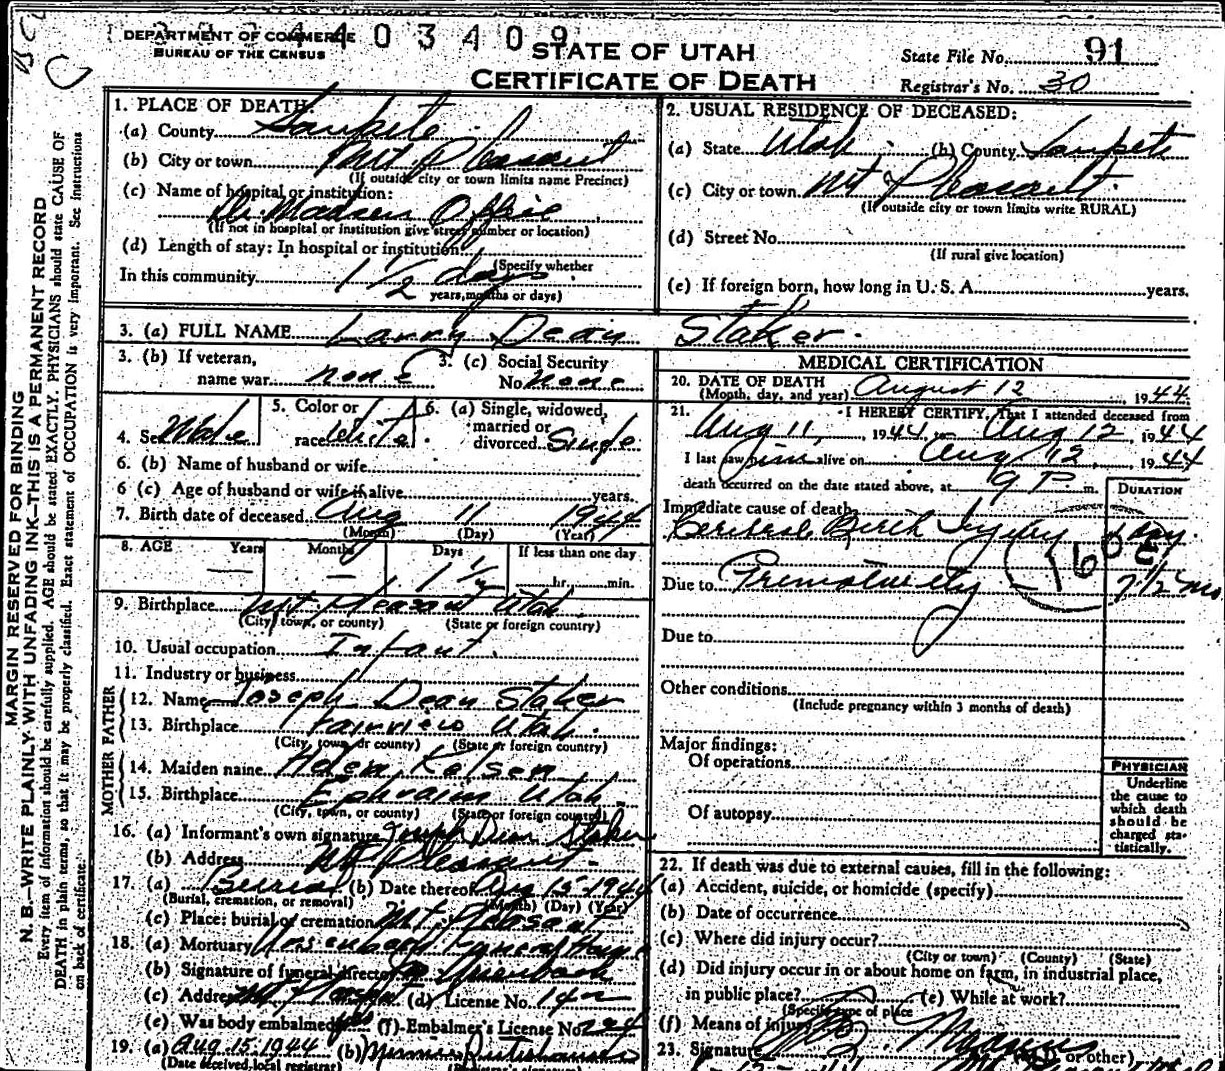 DEPARTMENT OF COMMERCE
BUREAU OF THE CENSUS
4403409
STATE OF UTAH
CERTIFICATE OF DEATH
State File No. 91
Registrar's No. 30
MARGIN RESERVED FOR BINDING
N. B.—WRITE PLAINLY WITH UNFADING INK—THIS IS A PERMANENT RECORD
Every item of information should be carefully supplied. AGE should be stated EXACTLY. PHYSICIANS should state CAUSE OF
DEATH in plain terms, so that it may be properly classified. Exact statement of OCCUPATION is very important. See instructions
on back of certificate.
1. PLACE OF DEATH:
(a) County Sanpete
(b) City or town Mt Pleasant
(If outside city or town limits name Precinct)
(c) Name of hospital or institution:
Dr. Madsen Office
(If not in hospital or institution give street number or location)
(d) Length of stay: In hospital or institution
(Specify whether
In this community 1 1/2 days
years, months or days)
2. USUAL RESIDENCE OF DECEASED:
(a) State Utah (b) County Sanpete
(c) City or town Mt Pleasant
(If outside city or town limits write RURAL)
(d) Street No.
(If rural give location)
(e) If foreign born, how long in U. S. A. years.
3. (a) FULL NAME Larry Dean Staker
3. (b) If veteran,
name war none
3. (c) Social Security
No. none
4. Sex Male
5. Color or
race White
6. (a) Single, widowed,
married or
divorced Single
6. (b) Name of husband or wife
6 (c) Age of husband or wife if alive years.
7. Birth date of deceased Aug 11 1944
(Month) (Day) (Year)
8. AGE Years Months Days If less than one day
— — 1 1/2 hr. min.
9. Birthplace Mt Pleasant Utah
(City, town, or county) (State or foreign country)
10. Usual occupation Infant
11. Industry or business
FATHER
12. Name Joseph Dean Staker
13. Birthplace Fairview Utah
(City, town, or county) (State or foreign country)
MOTHER
14. Maiden name Helen
15. Birthplace Ephraim Utah
(City, town, or county) (State or foreign country)
16. (a) Informant's own signature Joseph Dean Staker
(b) Address Mt Pleasant
17. (a) Burial (b) Date thereof Aug 15 1944
(Burial, cremation, or removal) (Month) (Day) (Year)
(c) Place: burial or cremation Mt. Pleasant
18. (a) Mortuary Funeral Home
(b) Signature of funeral director
(c) Address Mt Pleasant (d) License No. 142
(e) Was body embalmed yes (f) Embalmer's License No. 224
19. (a) Aug. 15, 1944 (b)
(Date received local registrar) (Registrar's signature)
MEDICAL CERTIFICATION
20. DATE OF DEATH
(Month, day, and year) August 12, 1944
21. I HEREBY CERTIFY, That I attended deceased from
Aug 11, 1944 Aug 12 1944
I last saw him alive on Aug 12, 1944
death occurred on the date stated above, at 9 P. m.
DURATION
Immediate cause of death
Cerebral Birth Injury 1 day
160 c
Due to Prematurity 7 1/2 mo
Due to
Other conditions
(Include pregnancy within 3 months of death)
Major findings:
Of operations
Of autopsy
PHYSICIAN
Underline
the cause to
which death
should be
charged sta-
tistically.
22. If death was due to external causes, fill in the following:
(a) Accident, suicide, or homicide (specify)
(b) Date of occurrence
(c) Where did injury occur?
(City or town) (County) (State)
(d) Did injury occur in or about home on farm, in industrial place,
in public place? (e) While at work?
(Specify type of place
(f) Means of injury
23. Signature Madsen (M.D. or other)